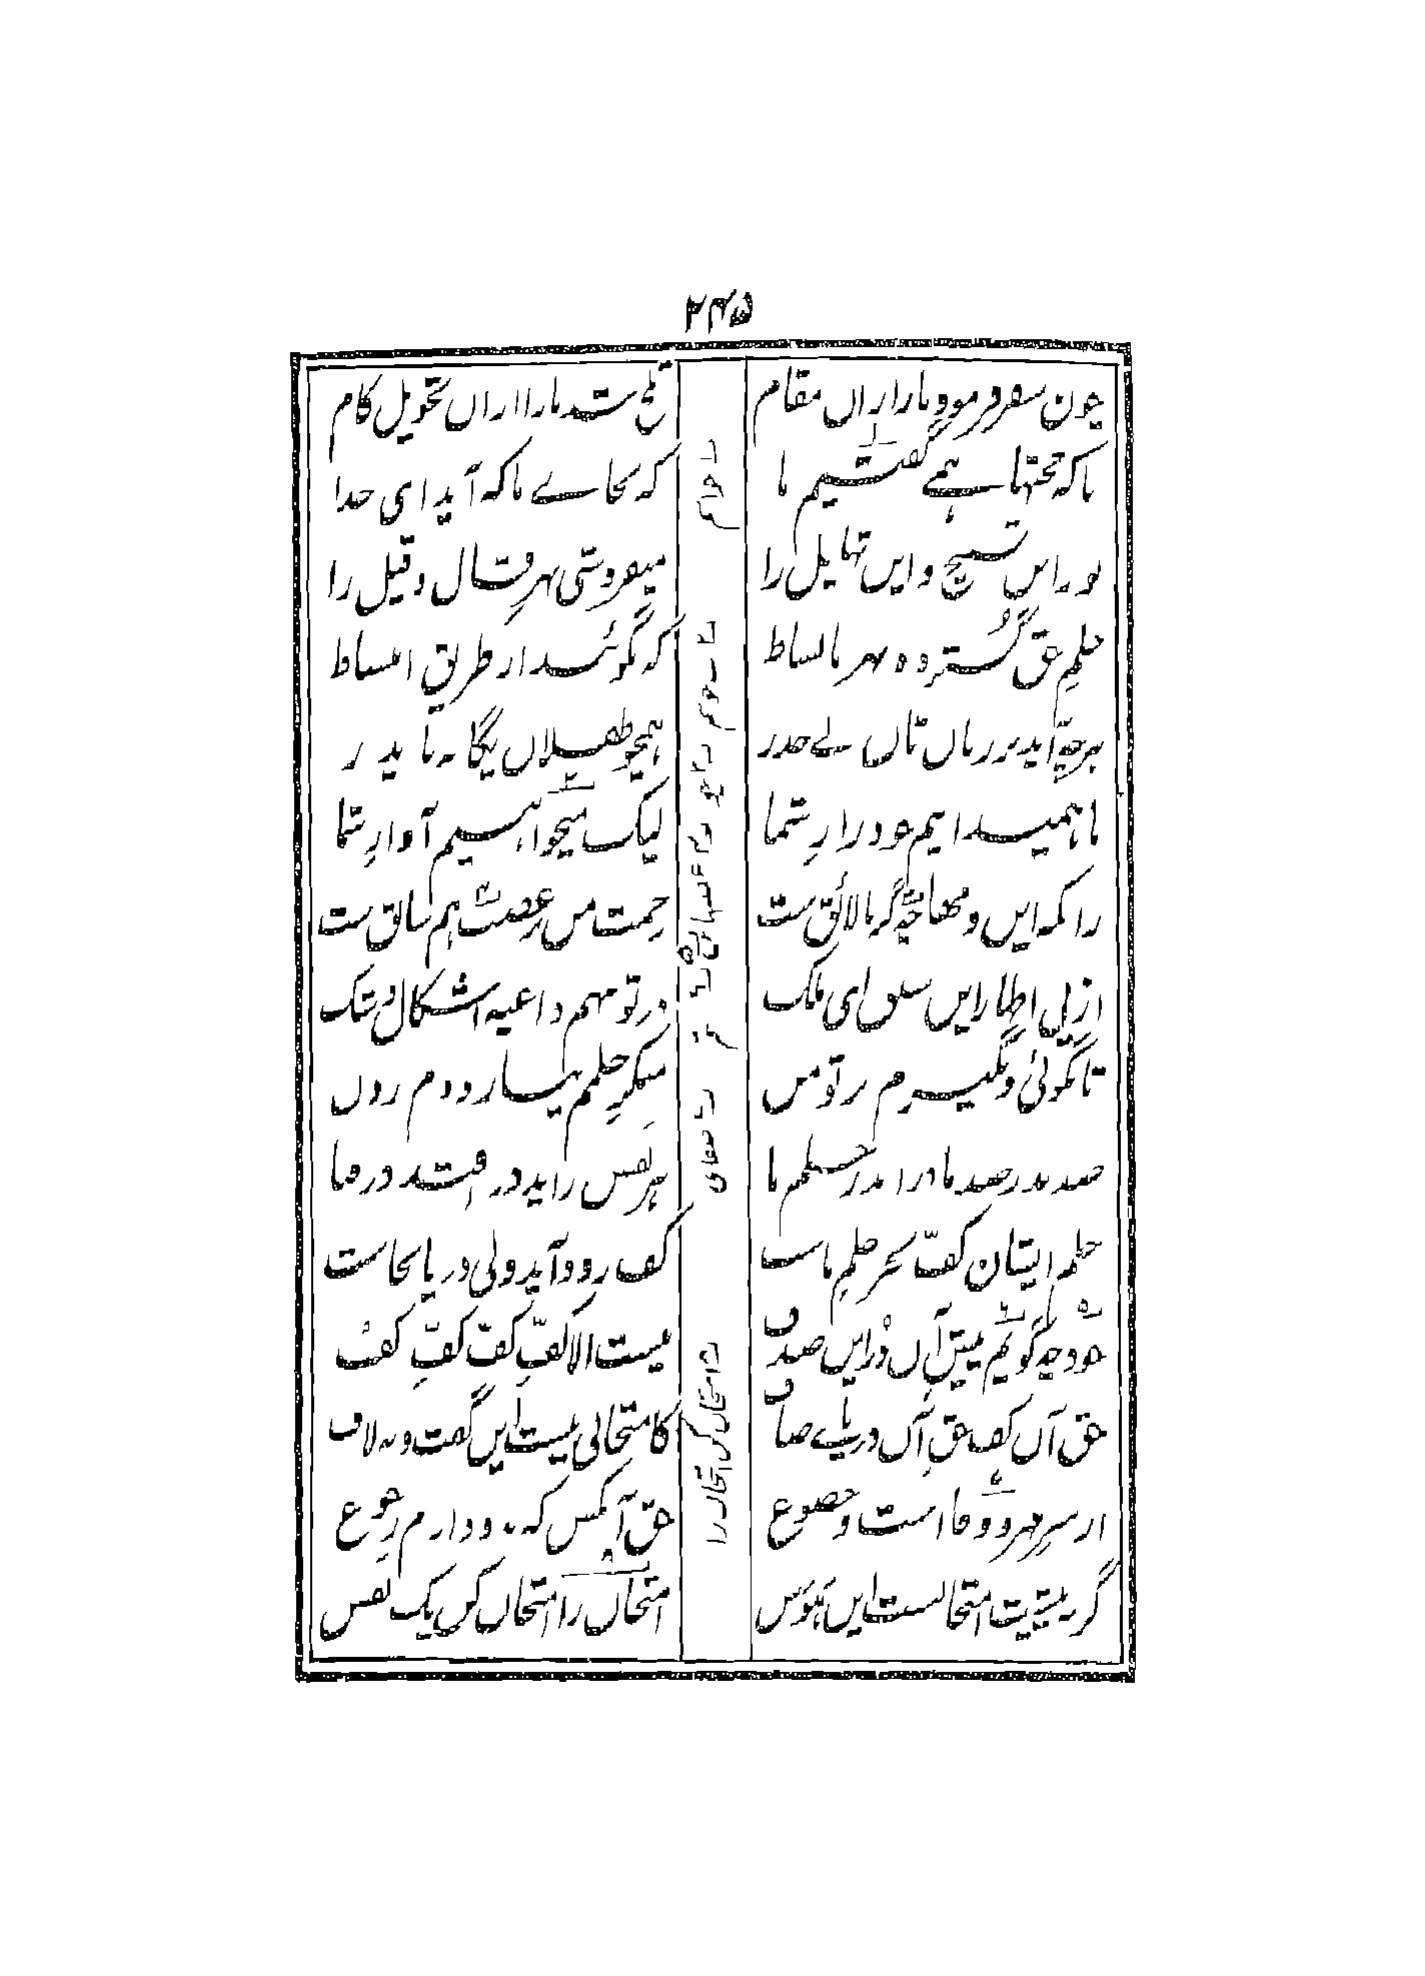 ۲۴۵
چون سفر فرمود ما را زان مقام تلخ شد ما را ازان تحویل کام
تا که حجتها همے گفتیم ما که بجاے ما که آید ای خدا
نور این تسبیح و این تهلیل را میفروشی بهر قال و قیل را
حلمِ حق گسترده بهر ما بساط که بگوئید از طریق انبساط
هرچه آید بر زبان تان بے حذر همچو طفلان یگانه با پدر
ما همیدانیم خود رازِ شما لیک میخواهیم آوازِ شما
زانکه این دمها چه گر نالائق ست رحمت من بر غضب هم سابق ست
از پی اظهار این سبق ای ملک در تو بنهم داعیه اشکال و شک
تا بگوئی و نگیرم بر تو من منکرِ حلمم نیارد دم زدن
صد پدر صد مادر اندر حلم ما هر نفس زاید در افتد در فنا
حلم ایشان کفّ بحر حلمِ ماست کف رود آید ولی دریا بجاست
خود چه گویم پیش آن دُر این صدف نیست الا کفِّ کفِّ کفِّ کف
حق آن کف حقِ آن دریاے صاف کامتحانی نیست این گفت و نه لاف
از سرِ مهر و وفا است و خضوع حقّ آنکس که بدو دارم رجوع
گر به پیشت امتحانست این هوس امتحان را امتحان کن یک نفس